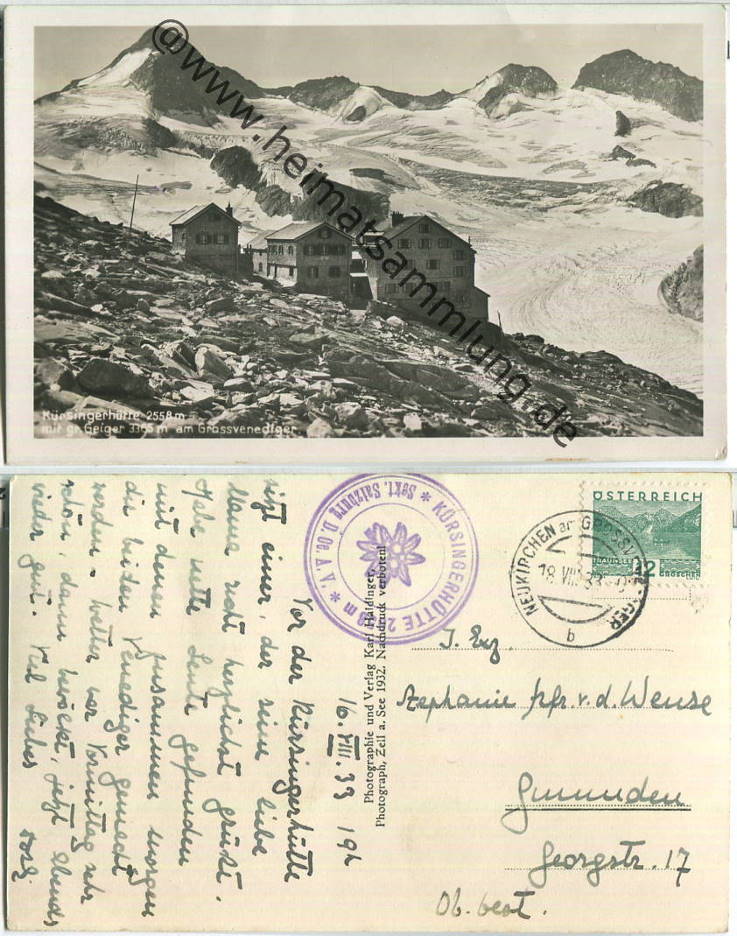 @www.heimatsammlung.de
Kürsingerhütte 2558 m
mit gr. Geiger 3365 m am Grossvenediger
16. VIII. 33 19h
Vor der Kürsingerhütte
sitzt einer, der seine liebe
Mama recht herzlichst grüßt.
Habe nette Leute gefunden
mit denen zusammen morgen
die beiden Venediger gemacht
werden. Wetter war Vormittag sehr
schön, dann bewölkt, jetzt abends
wieder gut. Viel Liebes
KÜRSINGERHÜTTE 2558 m
* Sekt. Salzburg D. Oe. A. V. *
Photographie und Verlag Karl Haidinger,
Photograph, Zell a. See 1932. Nachdruck verboten!
ÖSTERREICH
TRAUNSEE
12
GROSCHEN
NEUKIRCHEN am GROSSVENEDIGER
18. VIII. 33
b
I. Exz.
Stephanie frfr. v. d. Wense
Gmunden
Georgstr. 17
Ob. öst.